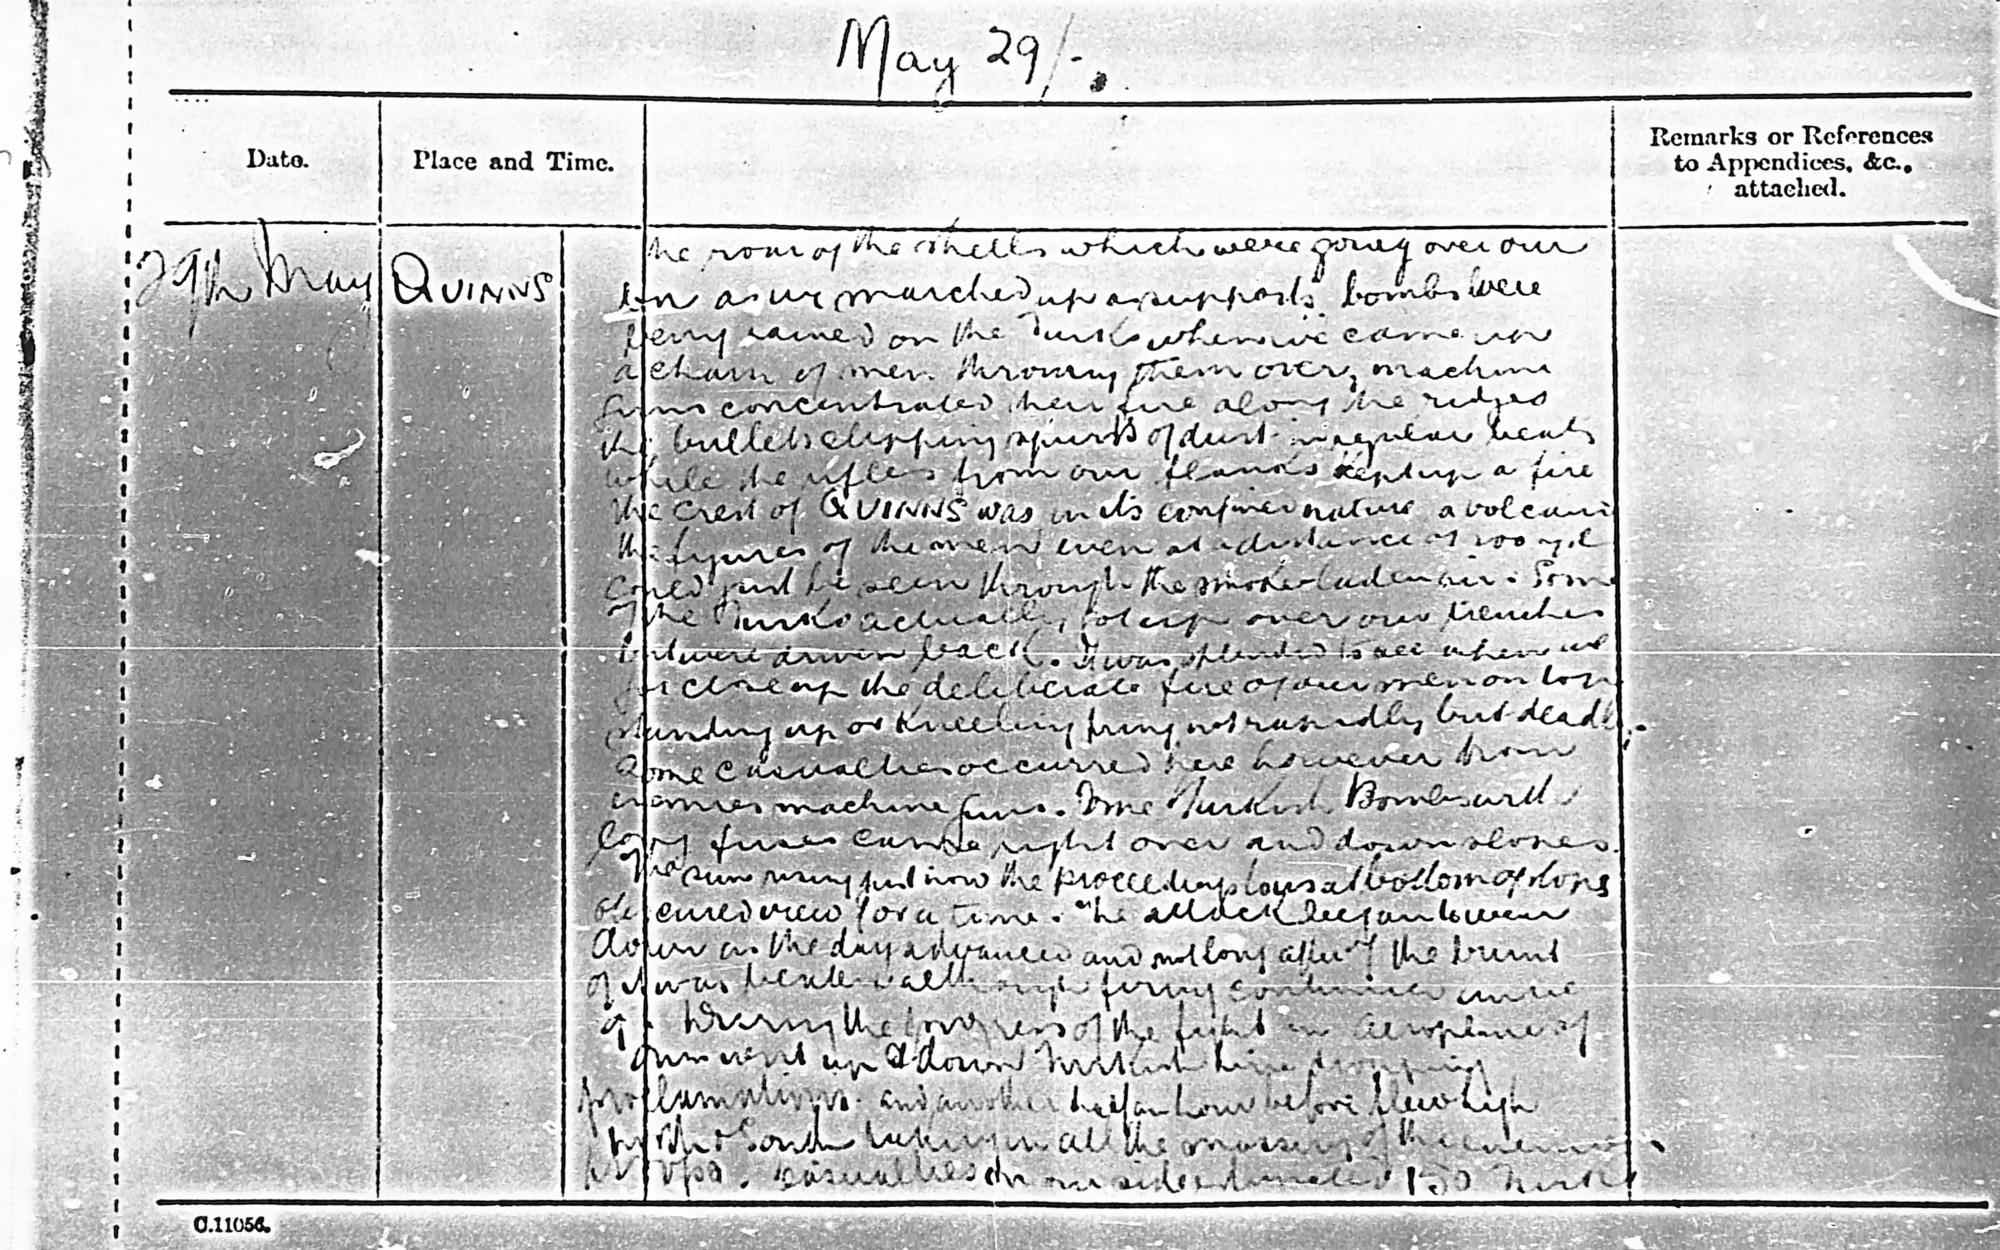 May 29/-.
Date.
Place and Time.
Remarks or References
to Appendices, &c.,
attached.
29th May
QUINNS
the roar of the shells which were going over our
as we marched up as supports bombs were
being rained on the Turks when we came up
a chain of men throwing them over, machine
guns concentrated their fire along the ridges
the bullets chipping spurts of dust in regular beats
while the rifles from our flanks kept up a fire
the crest of QUINNS was in its confined nature a volcano
the figures of the men even at a distance of 100 yds
could just be seen through the smoke laden air. Some
of the Turks actually got up over our trenches
but were driven back. It was splendid to see when we
got close up the deliberate fire of our men on top
standing up or kneeling firing not rapidly but deadly.
Some casualties occurred here however from
enemies machine guns. Some Turkish Bombs with
long fuses came right over and down slopes.
The sun rising just now the at bottom of slopes
obscured view for a time. The attack began to wear
down as the day advanced and not long after 7 the brunt
of it was beaten although firing continued until
9. During the progress of the fight an aeroplane of
ours went up & down Turkish line dropping
proclamations and another half an hour before flew high
North & South taking in all the massing of the enemies
troops. Casualties on our side estimated 150 Turks
C.11056.